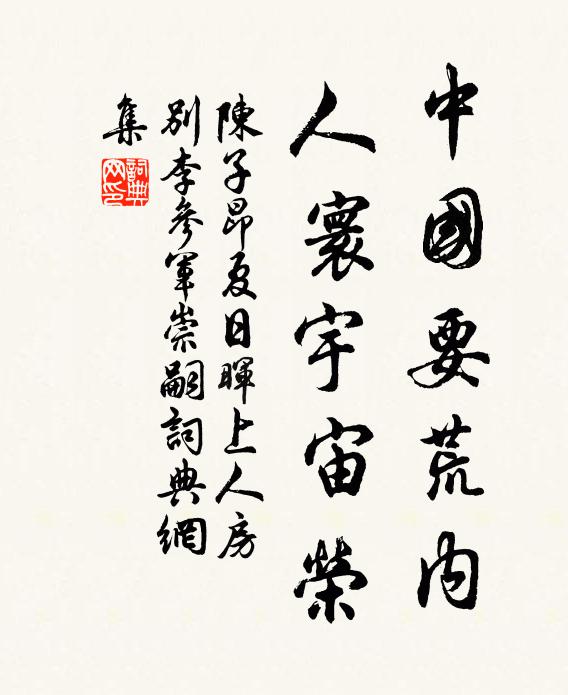 中國要荒内
人寰宇宙榮
陳子昂夏日暉上人房
别李參軍崇嗣詞典網
集
詞典
网印